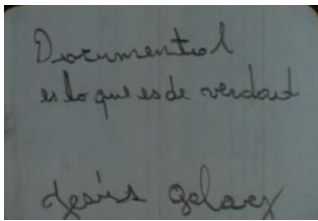 Documental
es lo que es de verdad
Jesús Gelaez